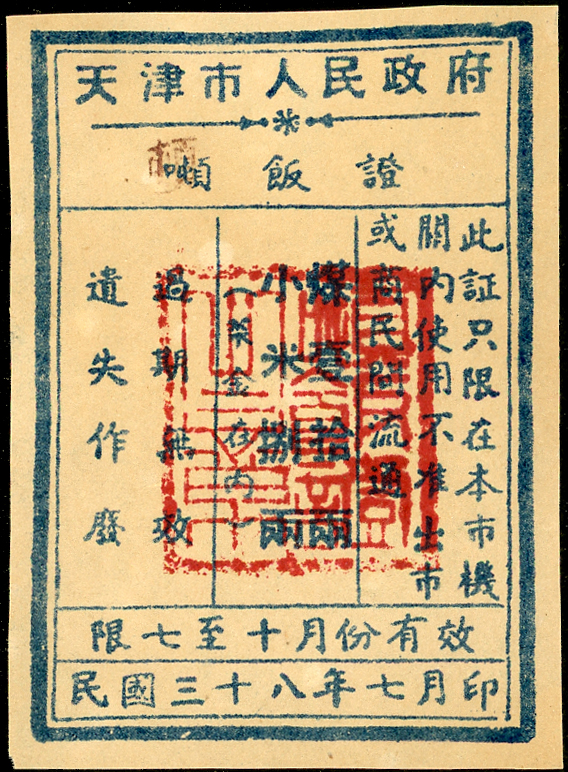 天津市人民政府
噸飯證
此証只限在本市機
関内使用不准出市
或商民間流通
煤壹拾兩
小米捌兩
(菜金在内)
過期無效
遺失作廢
限七至十月份有效
民國三十八年七月印